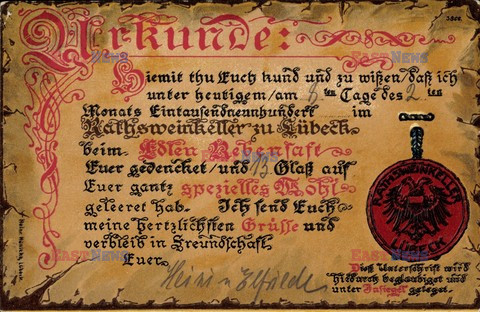 3808
Urkunde:
Hiemit thu Euch kund und zu wißen/daß ich
unter heutigem/am 8 ten Tage des 2 ten
Monats Eintausendneunhundert im
Rathsweinkeller zu Lübeck
beim Edlen Rebensaft
Euer gedencket/und 13 Glaß auf
Euer gantz spezielles Wohl
geleeret hab. Ich send Euch
meine hertzlichsten Grüße und
verbleib in Freundschaft
Euer
RATHSWEINKELLER
LÜBECK
Dieß Unterschrift wird
hiedurch beglaubiget und
unter Insiegel geleget.
EASTNEWS
EASTNEWS
EASTNEWS
EASTNEWS
EASTNEWS